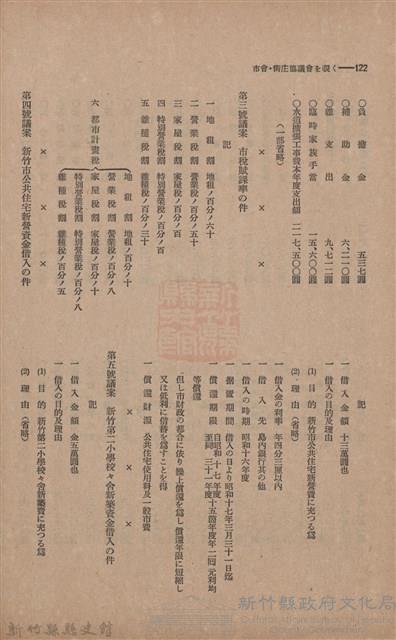 市會・街庄協議會を覗く――122
○負擔金　五三七圓
○補助金　六、二一〇圓
○雜支出　九、七一二圓
○臨時家族手當　一五、六〇〇圓
○水道擴張工事費本年度支出額　二一七、五〇〇圓
（一部省略）
×　×　×
第三號議案　市稅賦課率の件
記
一　地租割　地租ノ百分ノ六十
二　營業稅割　營業稅ノ百分ノ五十
三　家屋稅割　家屋稅ノ百分ノ百
四　特別營業稅割　特別營業稅ノ百分ノ百
五　雜種稅割　雜種稅ノ百分ノ三十
六　都市計畫稅
地租割　地租ノ百分ノ十
營業稅割　營業稅ノ百分ノ八
家屋稅割　家屋稅ノ百分ノ十
特別營業稅割　特別營業稅ノ百分ノ八
雜種稅割　雜種稅ノ百分ノ五
×　×　×
第四號議案　新竹市公共住宅新營資金借入の件
記
一　借入金額　十三萬圓也
一　借入の目的及理由
(1)　目的　新竹市公共住宅新營費に充つる爲
(2)　理由（省略）
一　借入金の利率　年四分三厘以内
一　借入先　島内銀行其の他
一　借入の時期　昭和十六年度
一　据置期間　借入の日より昭和十七年三月三十一日迄
一　償還期限　自昭和十七年度至同三十一年度十五箇年度年二回元利均
等償還
但し市財政の都合に依り繰上償還を爲し償還年限に短縮し
又は低利に借替を爲すことを得
一　償還財源　公共住宅使用料及一般市費
×　×　×
第五號議案　新竹第二小學校々舍新築資金借入の件
記
一　借入金額　金五萬圓也
一　借入の目的及理由
(1)　目的　新竹第二小學校々舍新築費に充つる爲
(2)　理由（省略）
新竹縣縣史館
新竹縣政府文化局